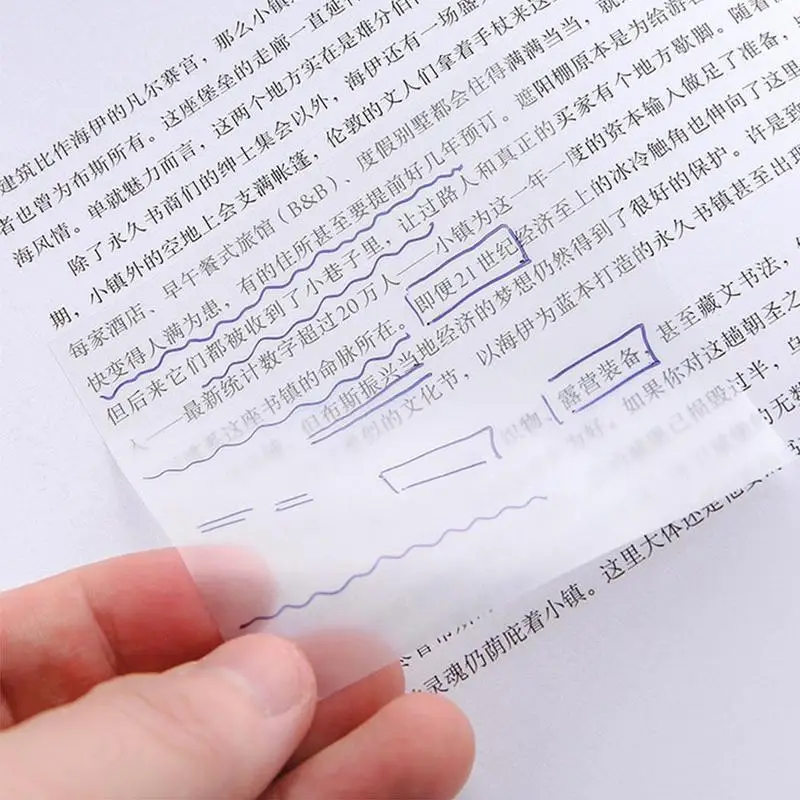 建筑比作海伊的凡尔赛宫，那么小镇
者也曾为布斯所有。这座堡垒的走廊一直延
海风情。单就魅力而言，这两个地方实在是难分伯
除了永久书商们的绅士集会以外，海伊还有一场盛
期，小镇外的空地上会支满帐篷，伦敦的文人们拿着手杖来这
每家酒店、早午餐式旅馆（B&B）、度假别墅都会住得满满当当，就
快变得人满为患，有的住所甚至要提前好几年预订。遮阳棚原本是为给游客
但后来它们都被收到了小巷子里，让过路人和真正的买家有个地方歇脚。随着
人——最新统计数字超过20万人——小镇为这一年一度的资本输入做足了准备，
是这座书镇的命脉所在。即便21世纪经济至上的冰冷触角也伸向了这里
但布斯振兴当地经济的梦想仍然得到了很好的保护。许是致
似的文化节，以海伊为蓝本打造的永久书镇甚至出现
织物、露营装备、甚至藏文书法，
为好。如果你对这趟朝圣之
已损毁过半，乌
的无数
灵魂仍荫庇着小镇。这里大体还是他